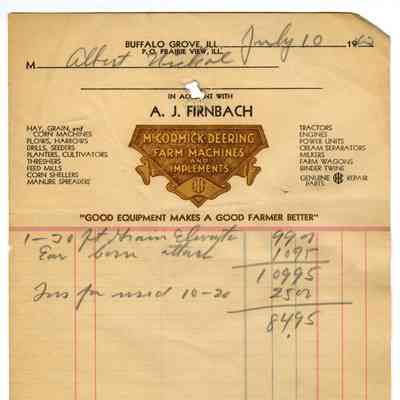 BUFFALO GROVE, ILL.
P. O. PRAIRIE VIEW, ILL.
July 10 19
M Albert
IN ACCOUNT WITH
A. J. FIRNBACH
HAY, GRAIN, and
CORN MACHINES
PLOWS, HARROWS
DRILLS, SEEDERS
PLANTERS, CULTIVATORS
THRESHERS
FEED MILLS
CORN SHELLERS
MANURE SPREADERS
McCORMICK-DEERING
FARM MACHINES
AND
IMPLEMENTS
TRACTORS
ENGINES
POWER UNITS
CREAM SEPARATORS
MILKERS
FARM WAGONS
BINDER TWINE
GENUINE IHC REPAIR
PARTS
"GOOD EQUIPMENT MAKES A GOOD FARMER BETTER"
1-20 ft Grain Elevator 99.00
Ear Corn attach 10.95
109.95
for used 10-20 25.00
84.95